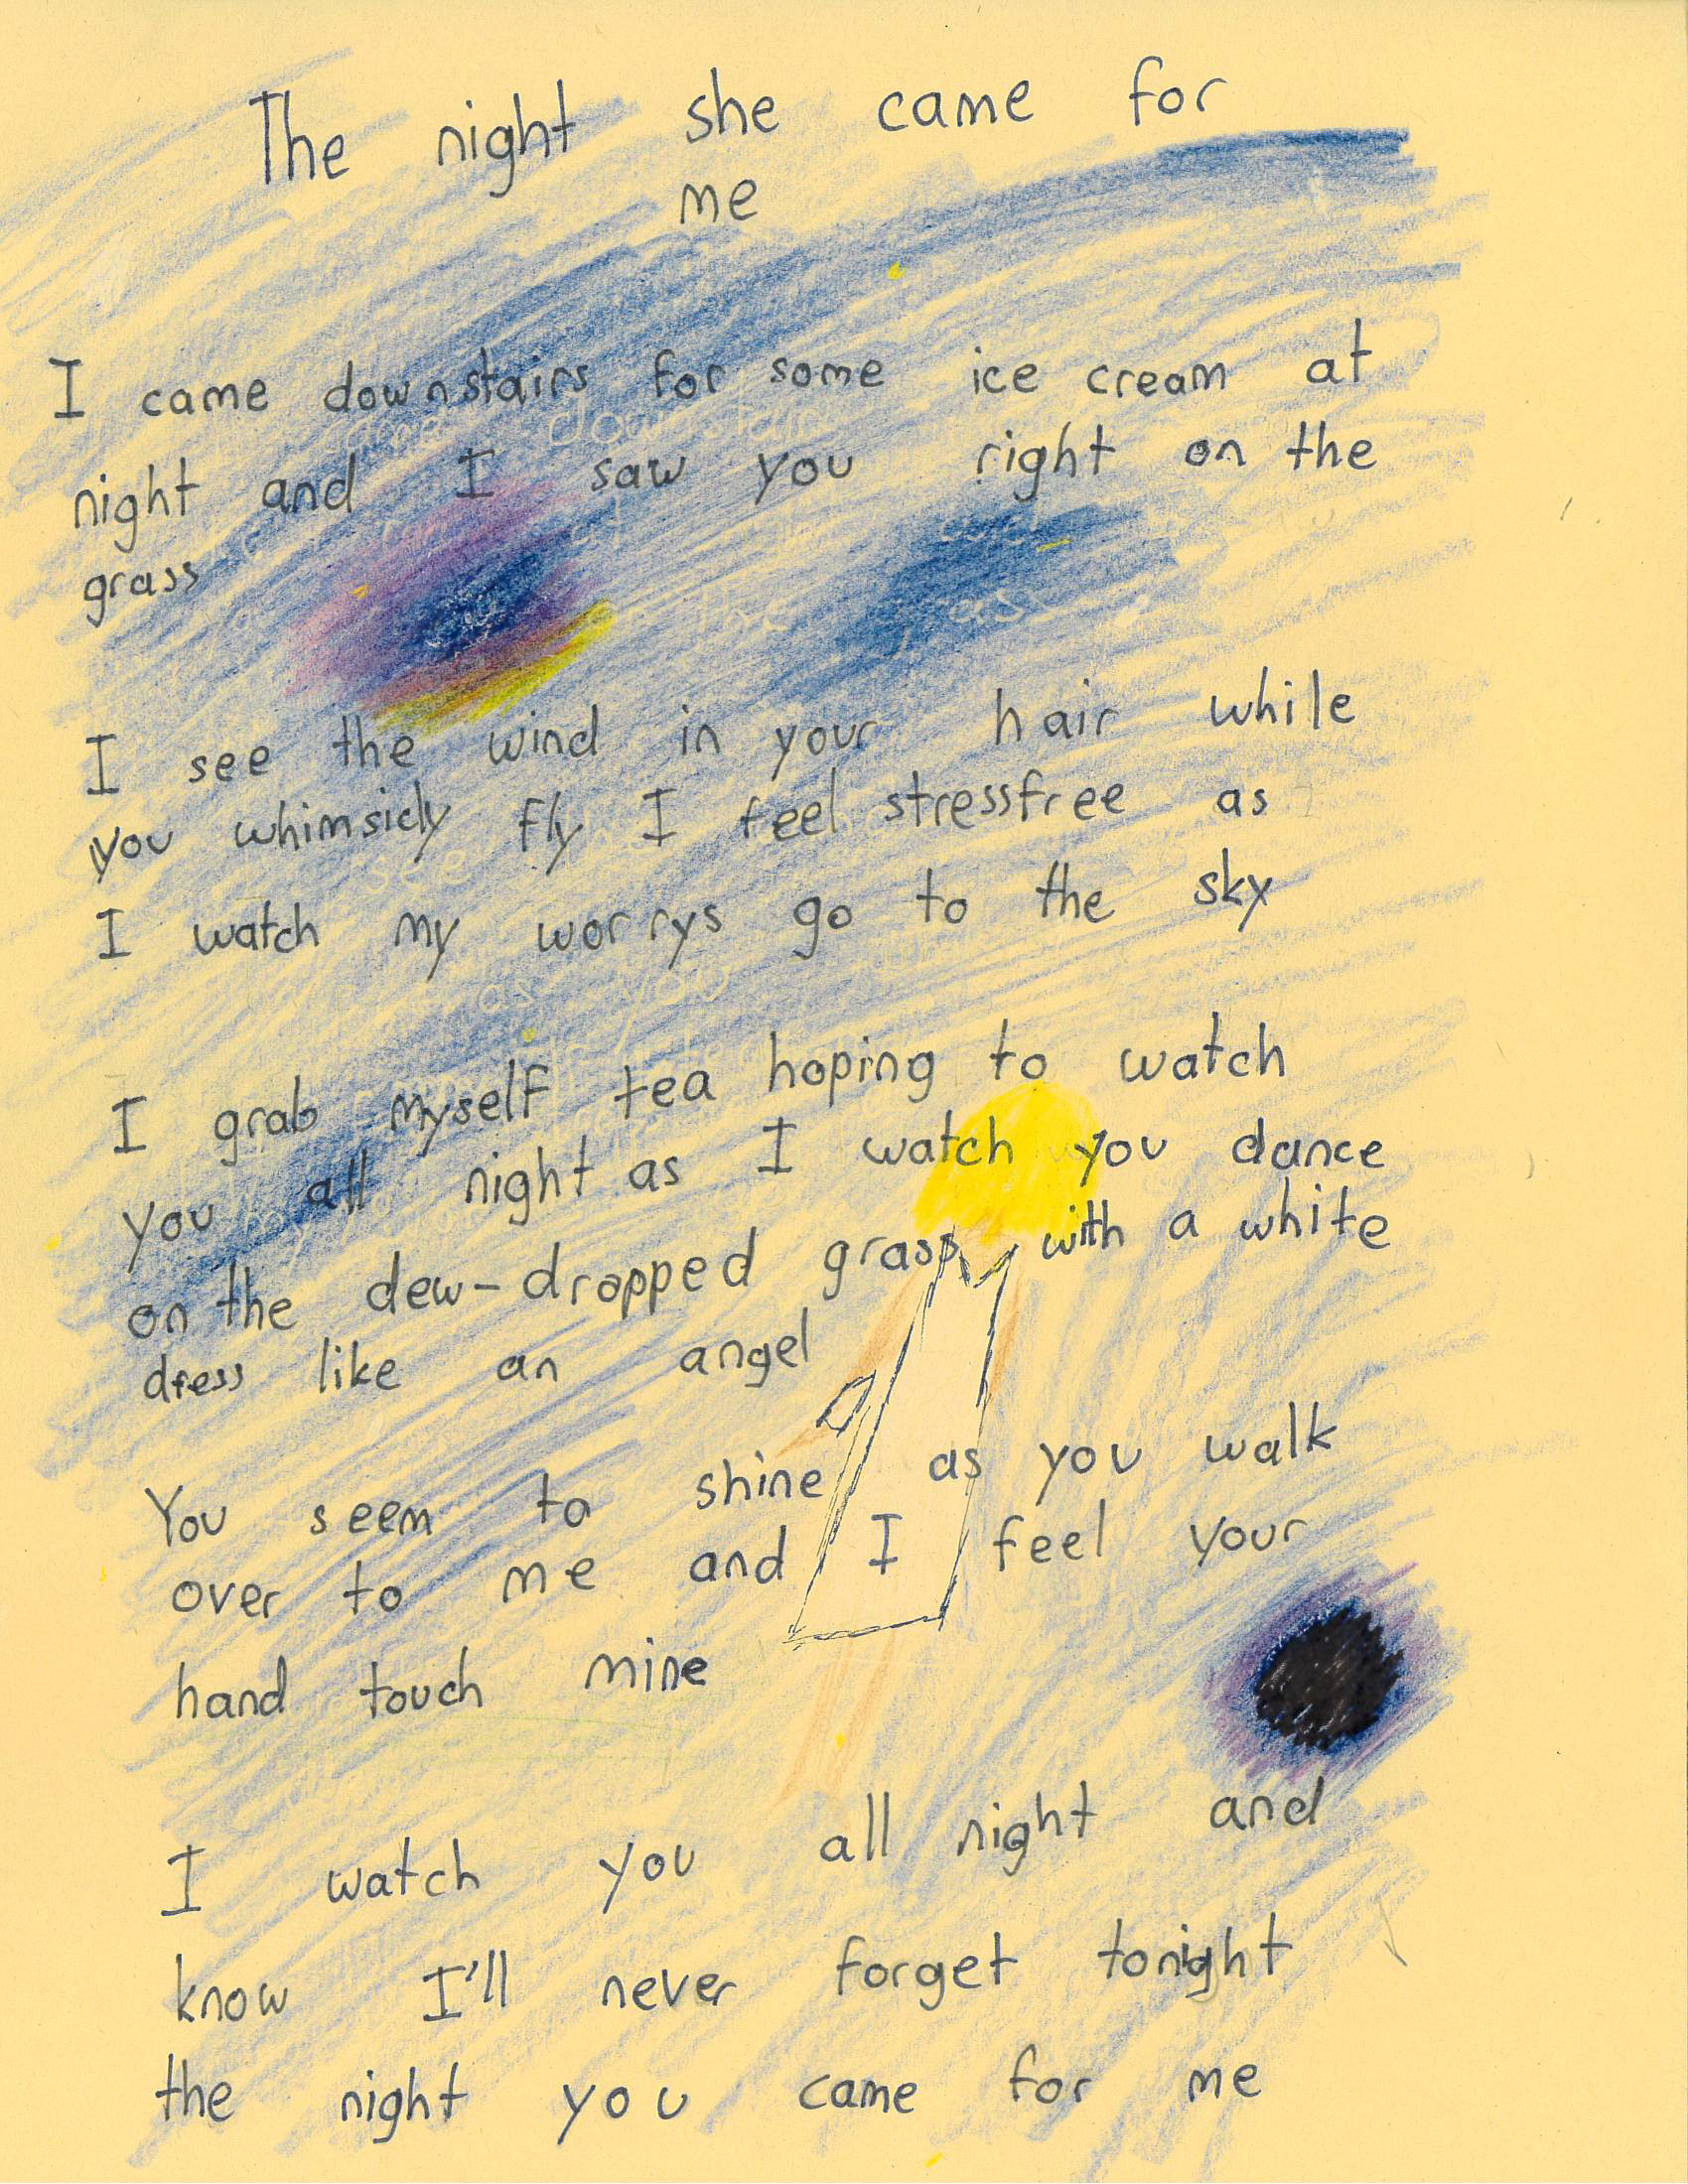 The night she came for
me
I came downstairs for some ice cream at
night and I saw you right on the
grass
I see the wind in your hair while
you whimsicly fly I feel stressfree as
I watch my worrys go to the sky
I grab myself tea hoping to watch
you all night as I watch you dance
on the dew-dropped grass with a white
dress like an angel
You seem to shine as you walk
over to me and I feel your
hand touch mine
I watch you all night and
know I'll never forget tonight
the night you came for me